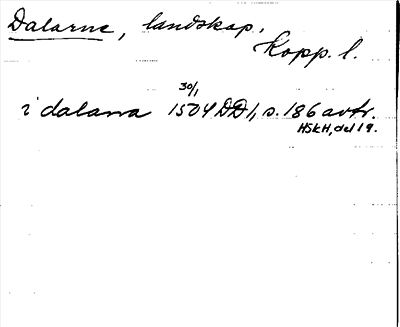 Dalarne, landskap.
Kopp. l.
30/1
i dalana 1504 DD1, s. 186 avtr.
HSkH, del 19.